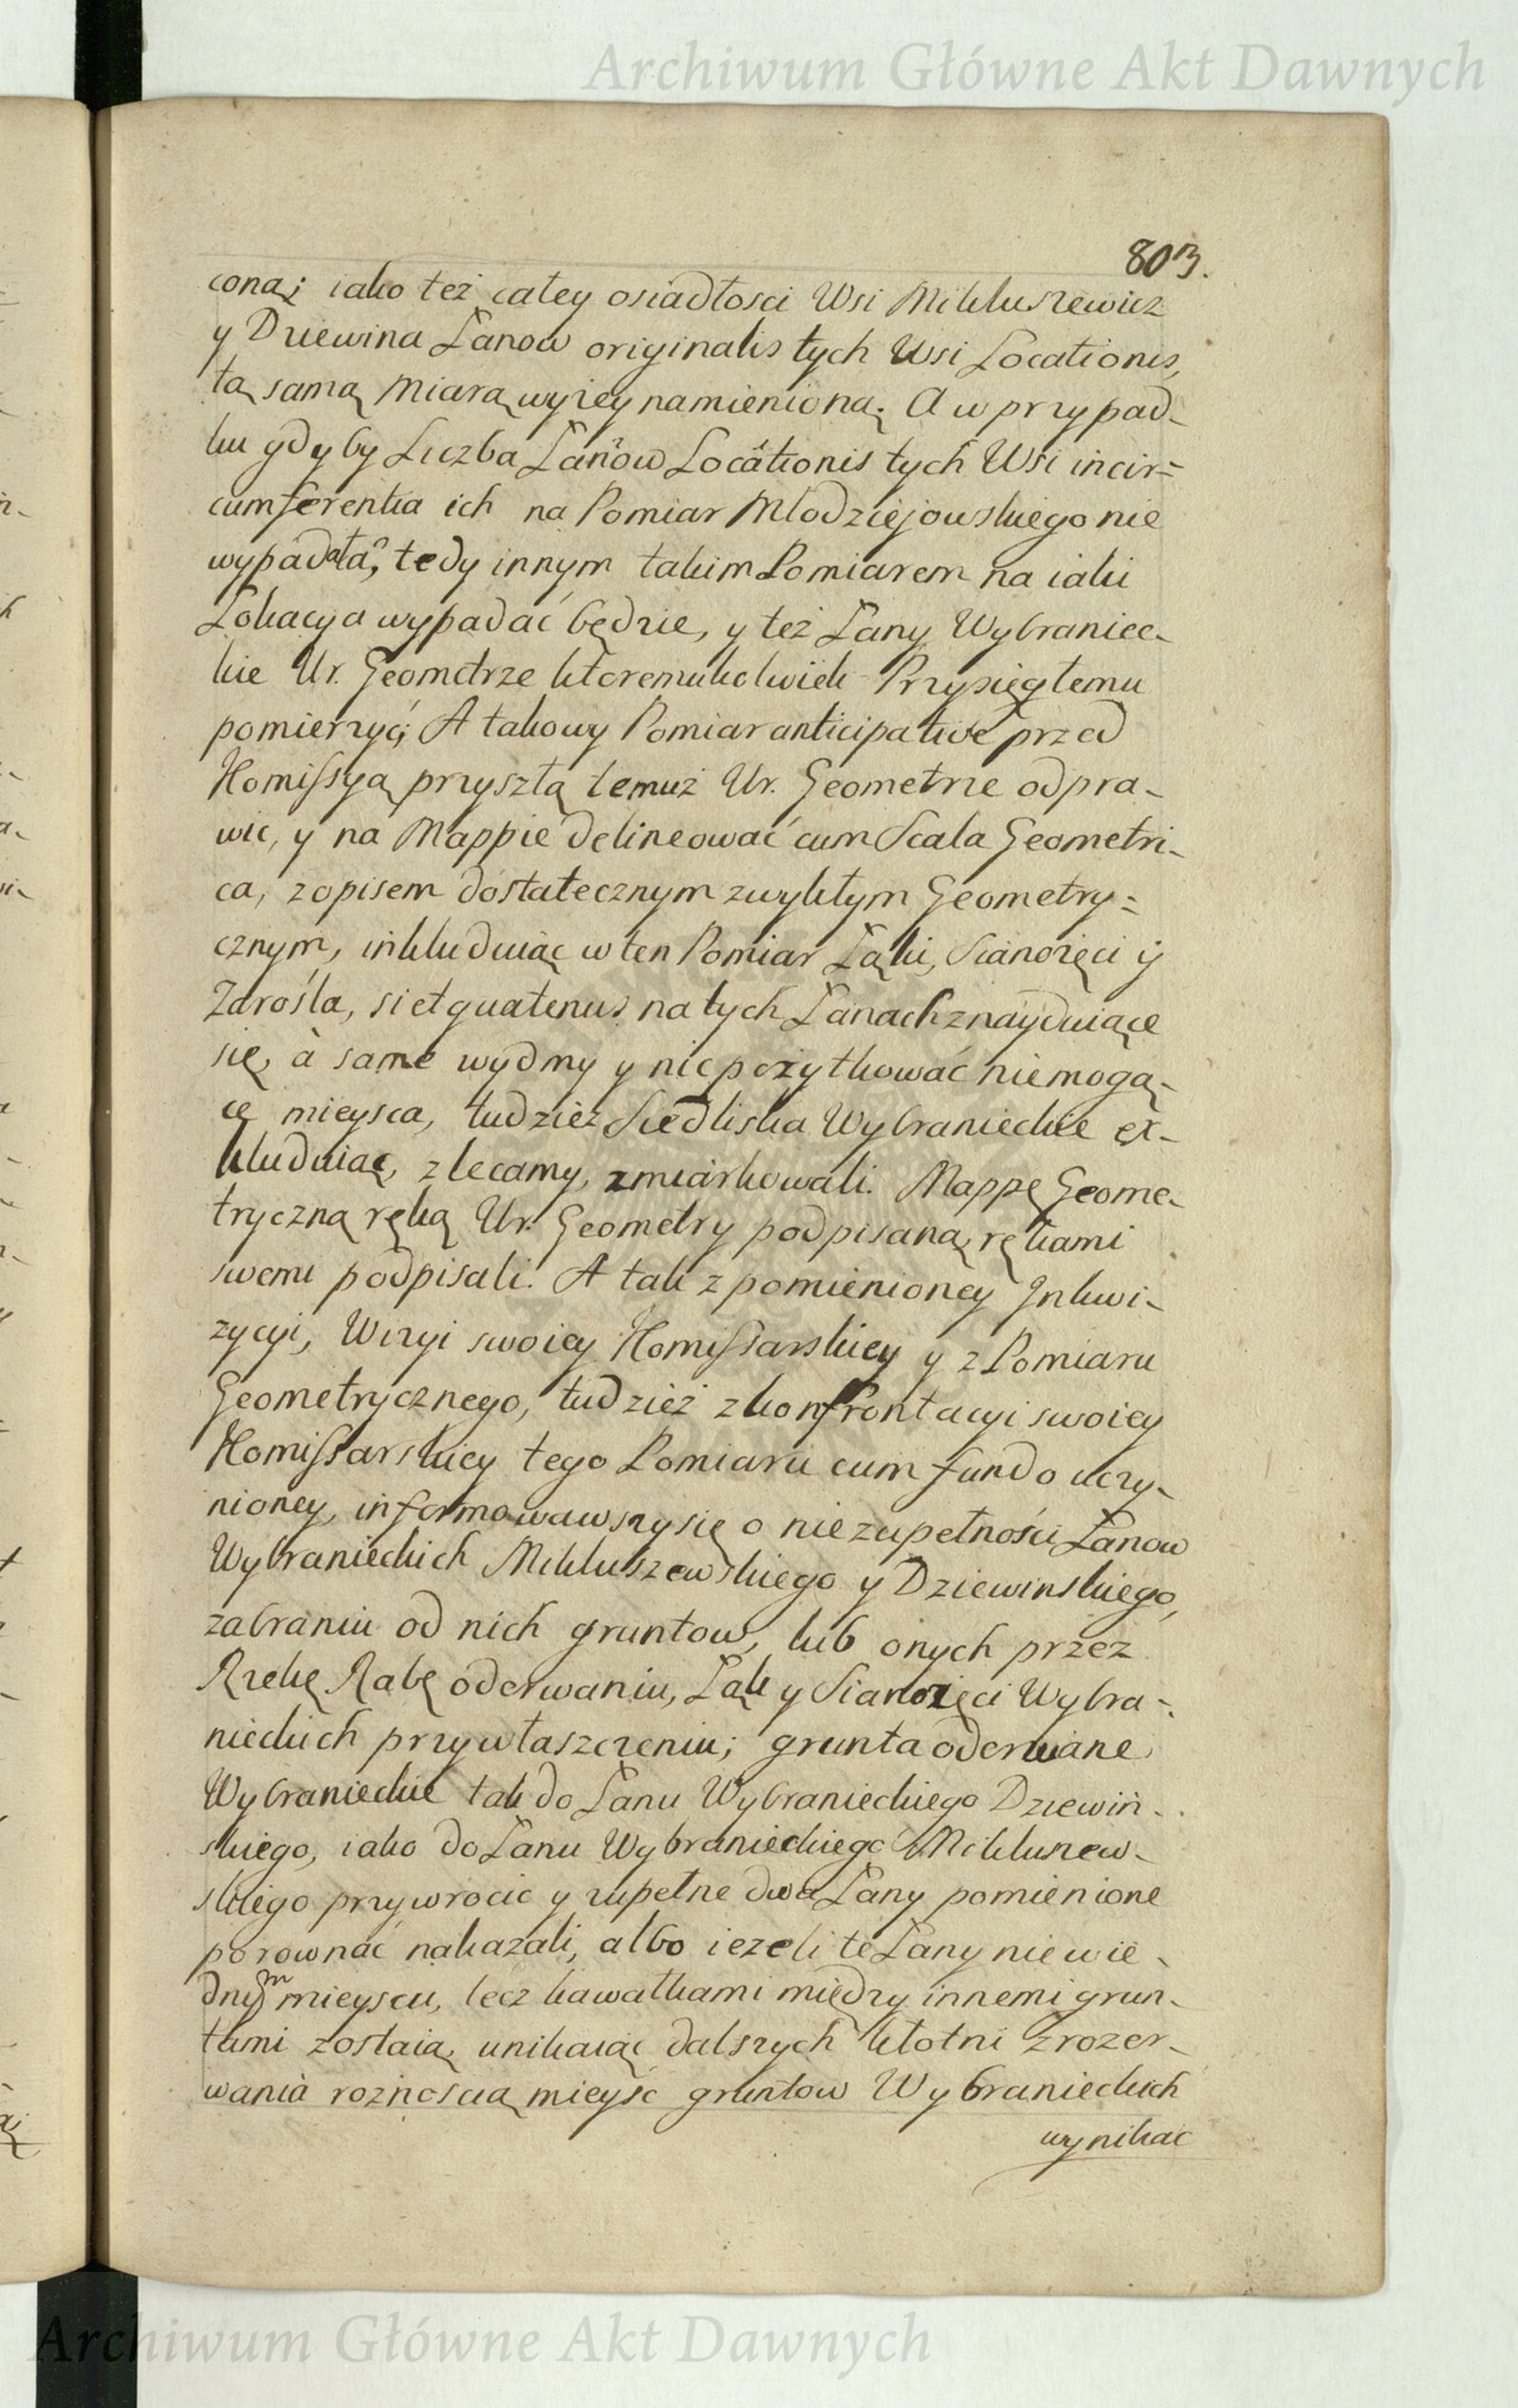 Archiwum Główne Akt Dawnych
803.
coną; iako też całey osiadłosci Wsi Mikluszewicz
y Dziewina Łanow originalis tych Wsi Locationis,
tą samą Miarą wyżey namienioną. A w przypad-
ku gdyby Liczba Łanow Locationis tych Wsi in cir=
cumferentia ich na Pomiar Młodziejowskiego nie
wypadała, tedy innym takim Pomiarem na iaki
Lokacya wypadać będzie, y też Łany Wybraniec-
kie Ur. Geometrze ktoremukolwiek Przysięgłemu
pomierzyć; A takowy Pomiar anticipative przed
Kommissyą przyszłą temuż Ur. Geometrze odpra-
wic, y na Mappie delineować cum Scala Geometri-
ca, z opisem dostatecznym zwykłym Geometry=
cznym, inkluduiąc w ten Pomiar Łąki, Sianożęci y
Zarośla, si et quatenus na tych Łanach znayduiące
się, à same wydmy y nic pożytkować niemogą-
ce mieysca, tudzież Siedliska Wybranieckie ex-
kluduiąc, zlecamy, zmiarkowali. Mappę Geome-
tryczną ręką Ur. Geometry podpisaną, rękami
swemi podpisali. A tak z pomienioney Inkwi-
zycyi, Wizyi swoiey Komissarskiey y z Pomiaru
Geometrycznego, tudzież z konfrontacyi swoiey
Komissarskiey tego Pomiaru cum fundo uczy-
nioney, informowawszy się o niezupełności Łanow
Wybranieckich Mikluszewskiego y Dziewinskiego,
zabraniu od nich gruntow, lub onych przez
Rzekę Rabę oderwaniu, Łąk y Sianożęci Wybra-
nieckich przywłaszczeniu; grunta oderwane
Wybranieckie tak do Łanu Wybranieckiego Dziewiń-
skiego, iako do Łanu Wybranieckiego Mikluszew-
skiego przywrocic y zupełne dwa Łany pomienione
porownać nakazali, albo iezeli te Łany nie w ie-
dnym mieyscu, lecz kawałkami między innemi grun-
tami zostaią, unikaiąc dalszych kłotni z rozer-
wania rożnoscią mieysc gruntow Wybranieckich
wynikac
Archiwum Główne Akt Dawnych